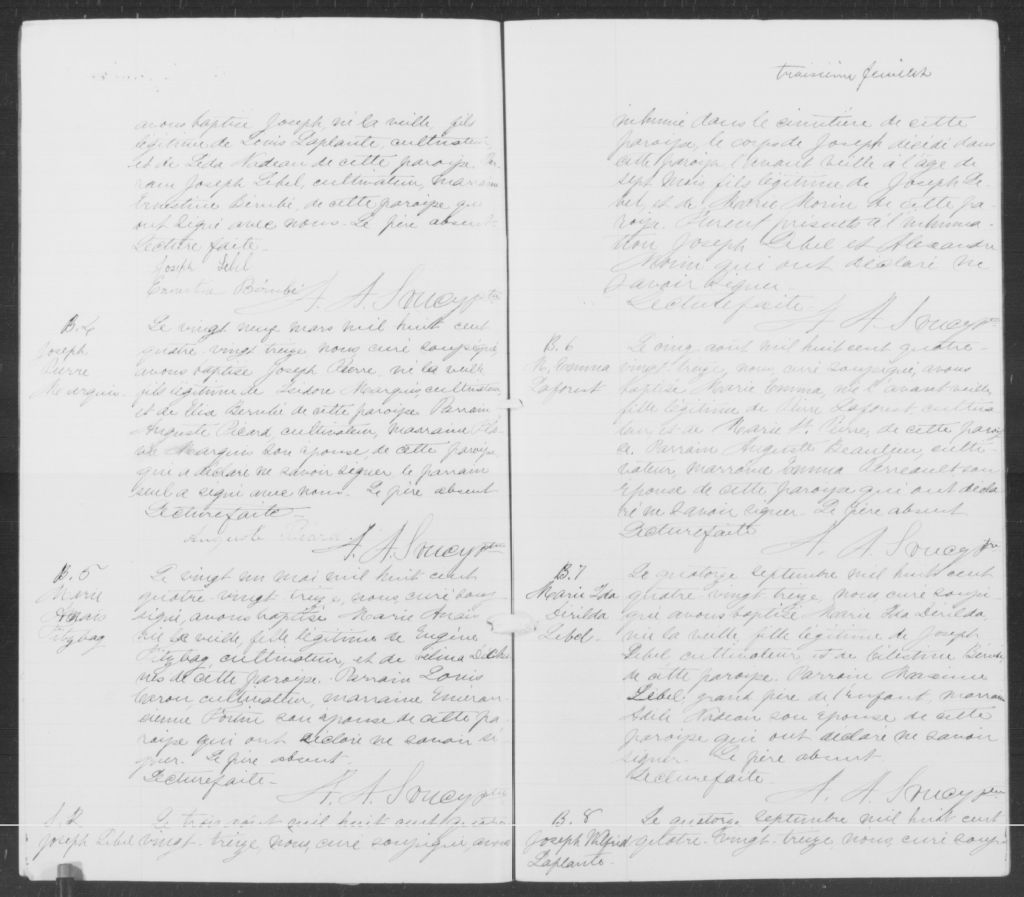 avons baptisé Joseph, né la veille fils
légitime de Louis Laplante, cultivateur,
et de Léda Nadeau de cette paroisse. Par-
rain Joseph Lebel, cultivateur, marraine
Ernestine Bérubé, de cette paroisse, qui
ont signé avec nous. Le père absent.
Lecture faite.
Joseph Lebel
Ernestine Bérubé
A. A. Soucy ptre
B. 4
Joseph
Pierre
Marquis
Le vingt neuf mars mil huit cent
quatre-vingt treize nous, curé soussigné,
avons baptisé Joseph Pierre, né la veille
fils légitime de Isidore Marquis cultivateur
et de Bérubé de cette paroisse Parrain
Auguste Picard, cultivateur, marraine
Marquis son épouse, de cette paroisse,
qui a déclaré ne savoir signer, le parrain
seul a signé avec nous. Le père absent
Lecture faite
Auguste Picard
A. A. Soucy ptre
B. 5
Marie
Anaïs
Fitzbag
Le vingt un mai mil huit cent
quatre-vingt treize, nous, curé sous-
signé, avons baptisé Marie Anaïs
née la veille, fille légitime de Eugène
Fitzbag, cultivateur, et de Selina
de cette paroisse. Parrain Louis
Caron, cultivateur, marraine
Fortin son épouse de cette pa-
roisse qui ont déclaré ne savoir si-
gner. Le père absent.
Lecture faite.
A. A. Soucy ptre
S. 2
Joseph Lebel
Le trois août mil huit cent quatre
vingt-treize, nous, curé soussigné, avons
troisième feuillet
inhumé dans le cimetière de cette
paroisse, le corps de Joseph décédé dans
cette paroisse l'avant veille à l'age de
sept mois, fils légitime de Joseph Le-
bel, et de Marie Morin de cette pa-
roisse. Furent présents à l'inhuma-
tion Joseph Lebel et Alexandre
Morin qui ont déclaré ne
savoir signer.
Lecture faite.
A. A. Soucy ptre
B. 6
M. Emma
Laforest
Le cinq août mil huit cent quatre-
vingt treize, nous, curé soussigné, avons
baptisé Marie Emma, née l'avant veille,
fille légitime de Pierre Laforest, cultiva-
teur, et de Marie St. Pierre, de cette parois-
se. Parrain Auguste Beaulieu, culti-
vateur, marraine Emma Perreault son
épouse de cette paroisse qui ont décla-
ré ne savoir signer. Le père absent
Lecture faite
A. A. Soucy ptre
B. 7
Marie Ida
Dirilda
Lebel.
Le quatorze septembre mil huit cent
quatre-vingt treize, nous, curé soussi-
gné avons baptisé Marie Ida Dirilda,
née la veille, fille légitime de Joseph
Lebel cultivateur et de Célestine
de cette paroisse. Parrain Maxime
Lebel, grand père de l'enfant, marraine
Nadeau son épouse de cette
paroisse qui ont déclaré ne savoir
signer. Le père absent.
Lecture faite.
A. A. Soucy ptre
B. 8
Joseph Wilfrid
Laplante.
Le quatorze septembre mil huit cent
quatre-vingt-treize, nous, curé souss-